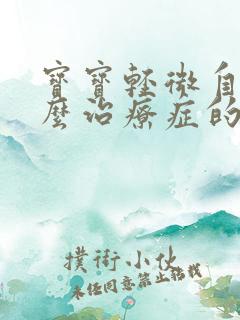 寶寶輕微自
麼治療症的
撲街小伙
未经同意禁止搭救